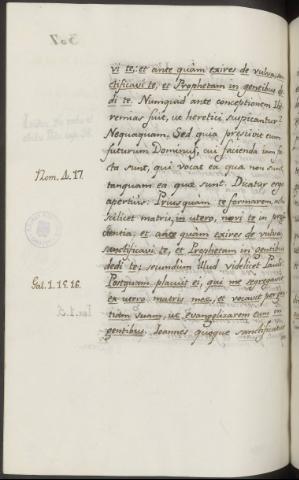 vi te; et ante quàm exires de vulva, san
ctificavi te, et Prophetam in gentibus de
di te. Numquid ante conceptionem Ie
remias fuit, ut heretici suspicantur?
Nequaquam. Sed quia præscivit eum
futurum Dominus, cui facienda iam fa
cta sunt, qui vocat ea quæ non sunt,
Rom. 4. 17.
tanquam ea quæ sunt. Dicatur ergo
apertius: Priusquam te formarem, in
scilicet matris in utero, novi te in præs
cientia, et ante quàm exires de vulva
sanctificavi te, et Prophetam in gentibus
dedi te; secundùm illud videlicet Pauli:
Gal. 1. 15. 16.
Postquam placuit ei, qui me segregavit
ex utero matris meæ, et vocavit per gra
tiam suam, ut Evangelizarem eum in
gentibus. Ioannes quoque sanctificatur